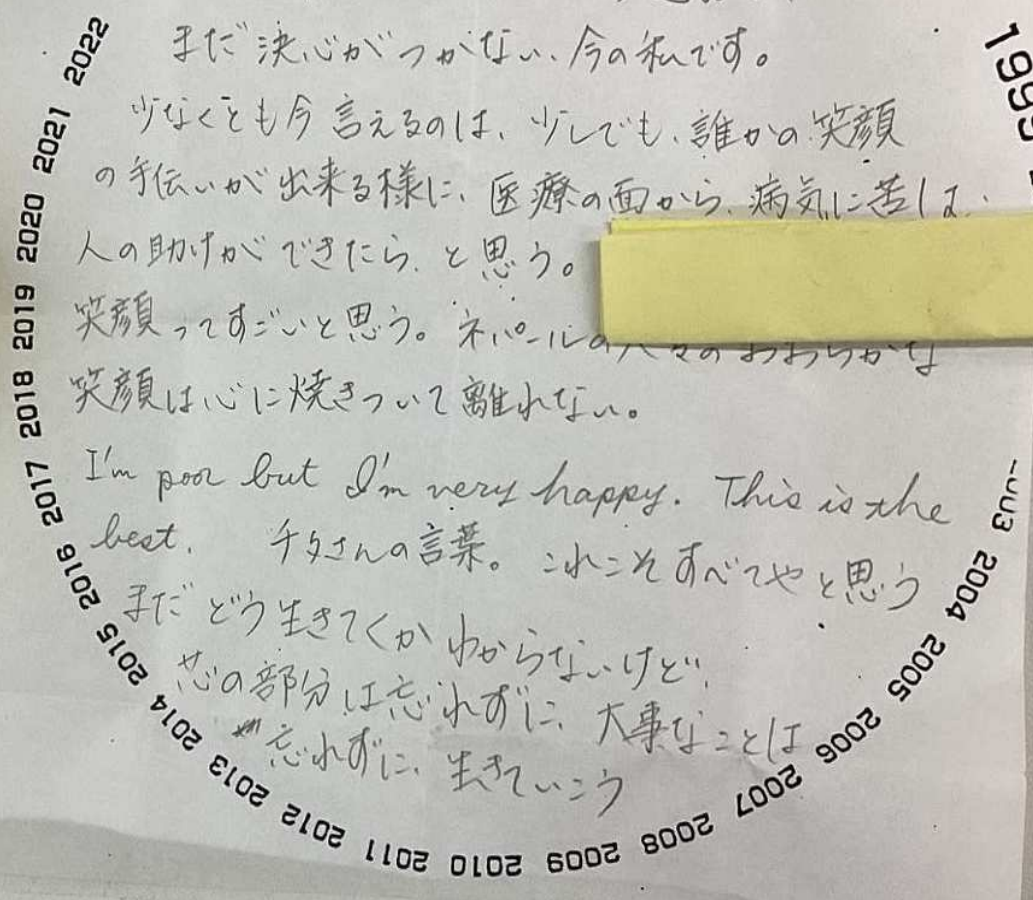 まだ決心がつかない、今の私です。
少なくとも今言えるのは、少しでも、誰かの笑顔
の手伝いが出来る様に、医療の面から、病気に苦し
人の助けができたら、と思う。
笑顔ってすごいと思う。ネパールの人々のおおらかな
笑顔は心に焼きついて離れない。
I'm poor but I'm very happy. This is the
best. チタさんの言葉。これこそすべてやと思う
まだどう生きてくかわからないけど、
芯の部分は忘れずに、大事なことは
忘れずに、生きていこう
2004 2005 2006 2007 2008 2009 2010 2011 2012 2013 2014 2015 2016 2017 2018 2019 2020 2021 2022